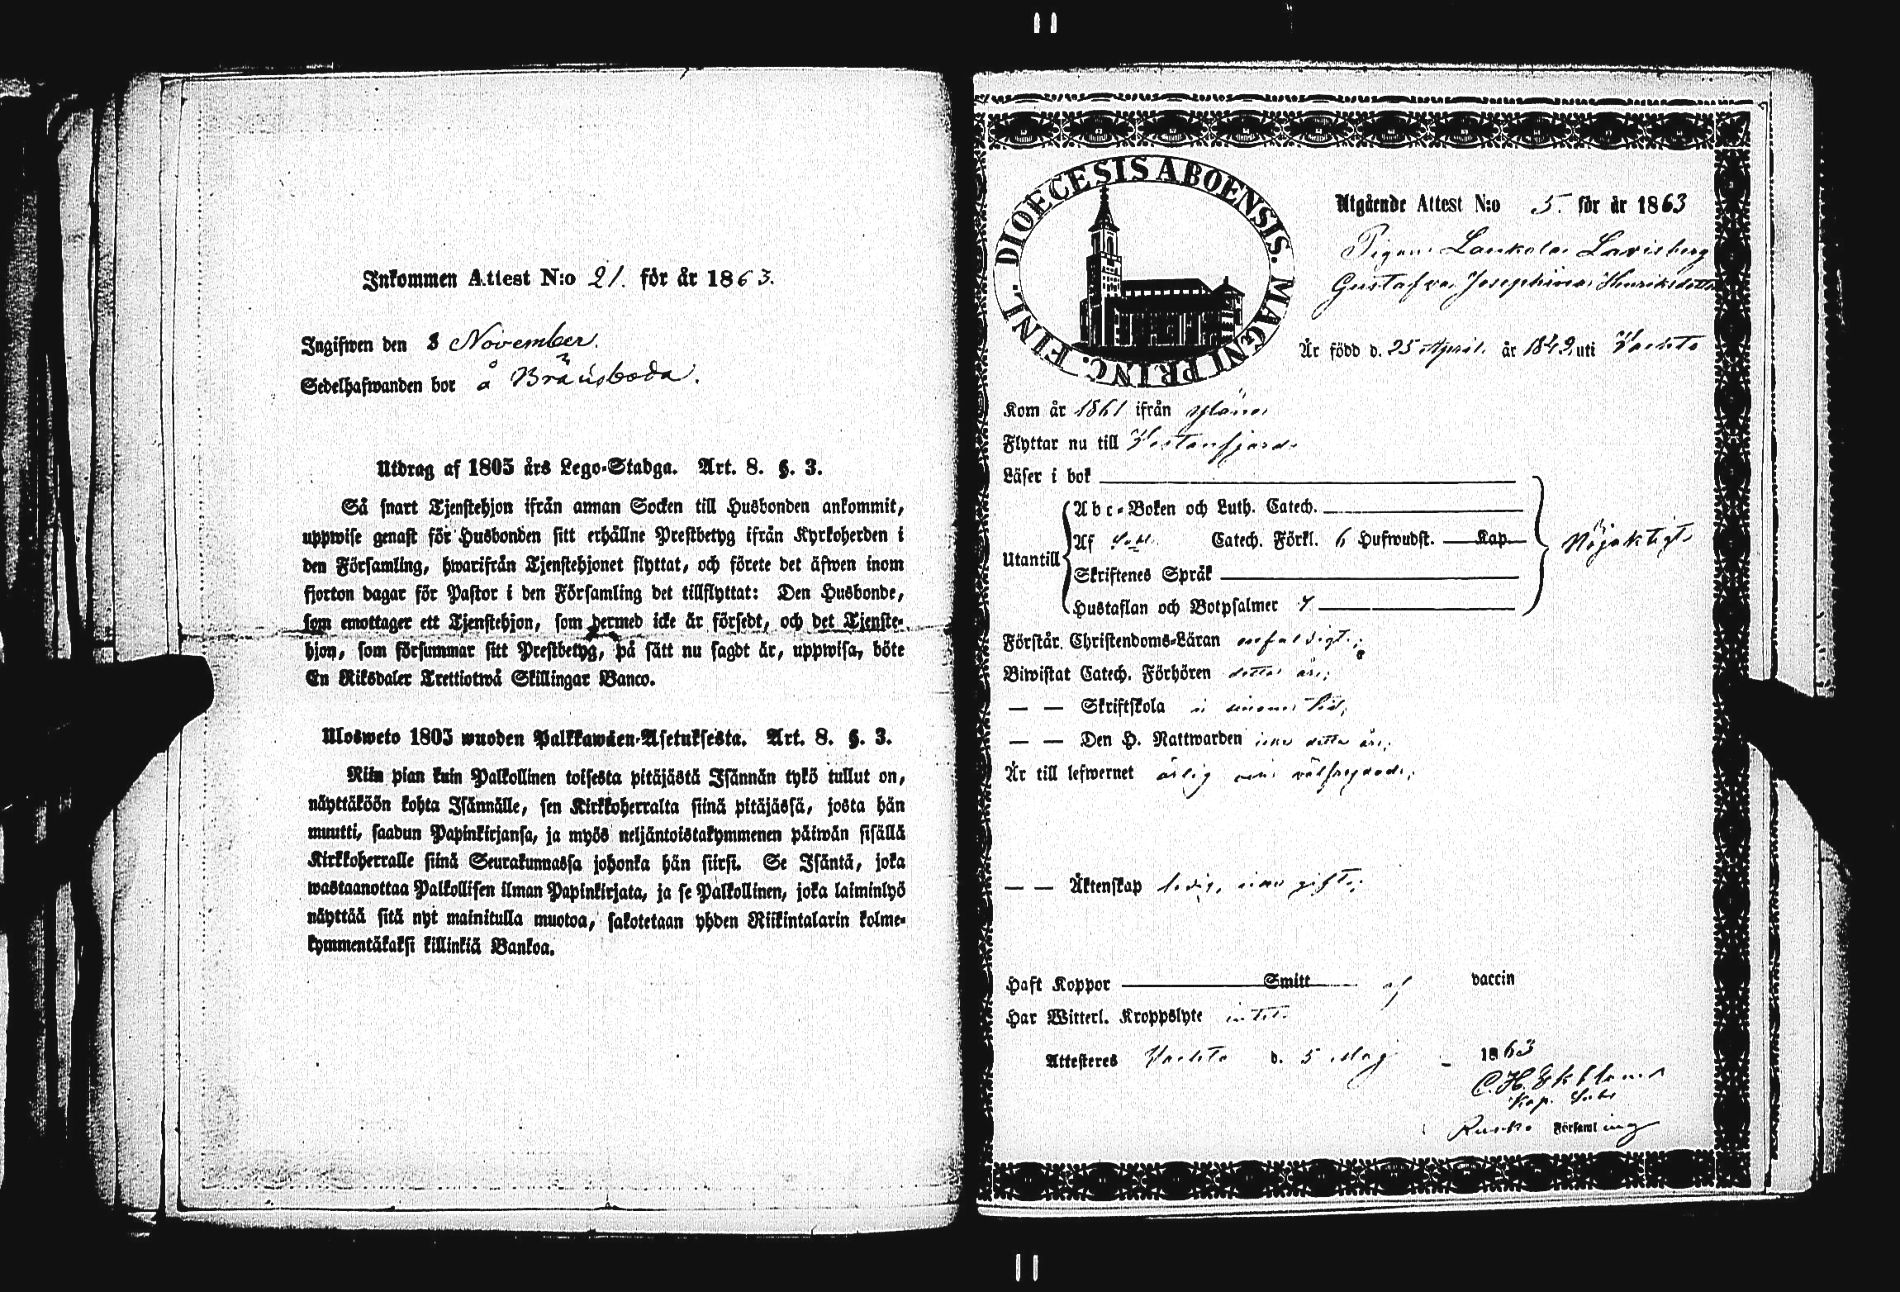 Inkommen Attest N:o 21. för år 1863.
Ingifwen den 3 November.
Sedelhafwanden bor å Bränsboda.
Utdrag af 1805 års Lego-Stadga. Art. 8. §. 3.
Så snart Tjenstehjon ifrån annan Socken till Husbonden ankommit,
uppwise genast för Husbonden sitt erhållne Prestbetyg ifrån Kyrkoherden i
den Församling, hwarifrån Tjenstehjonet flyttat, och förete det äfwen inom
fjorton dagar för Pastor i den Församling det tillflyttat: Den Husbonde,
som emottager ett Tjenstehjon, som dermed icke är försedt, och det Tjenste-
hjon, som försummar sitt Prestbetyg, på sätt nu sagdt är, uppwisa, böte
En Riksdaler Trettiotwå Skillingar Banco.
Ulosweto 1805 wuoden Palkkawäen-Asetuksesta. Art. 8. §. 3.
Niin pian kuin Palkollinen toisesta pitäjästä Isännän tykö tullut on,
näyttäköön kohta Isännälle, sen Kirkkoherralta siinä pitäjässä, josta hän
muutti, saadun Papinkirjansa, ja myös neljäntoistakymmenen päiwän sisällä
Kirkkoherralle siinä Seurakunnassa johonka hän siirsi. Se Isäntä, joka
wastaanottaa Palkollisen ilman Papinkirjata, ja se Palkollinen, joka laiminlyö
näyttää sitä nyt mainitulla muotoa, sakotetaan yhden Riikintalarin kolme-
kymmentäkaksi killinkiä Bankoa.
DIOECESIS ABOENSIS. MAGNI PRINC. FINL.
Utgående Attest N:o 5. för år 1863
Pigan
Gustafva Josephina Henriksdotter
Är född d. 25 April år 1842 uti Vahto
Kom år 1861 ifrån
Flyttar nu till Vestanfjard
Läser i bok
Utantill
Abc-Boken och Luth. Catech.
Af Catech. Förkl. 6 Hufwudst. Kap. Nöjaktigt
Skriftenes Språk
Hustaflan och Botpsalmer 7
Förstår Christendoms-Läran enfaldigt;
Biwistat Catech. Förhören detta år;
— — Skriftskola i sinom tid;
— — Den H. Nattwarden detta år;
Är till lefwernet ärlig och välfrejdad;
— — Äktenskap ledig, gifte;
Haft Koppor Smitt af vaccin
Har Witterl. Kroppslyte intet
Attesteres Vahto d. 5 Maj 1863
C.H. Ekblom
Kap.
Rusko Församling